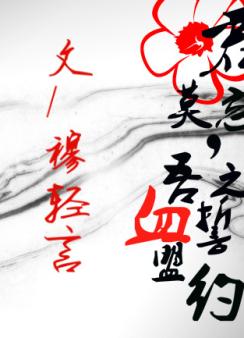 君莫忘，吾之血盟誓约
文/穆轻言